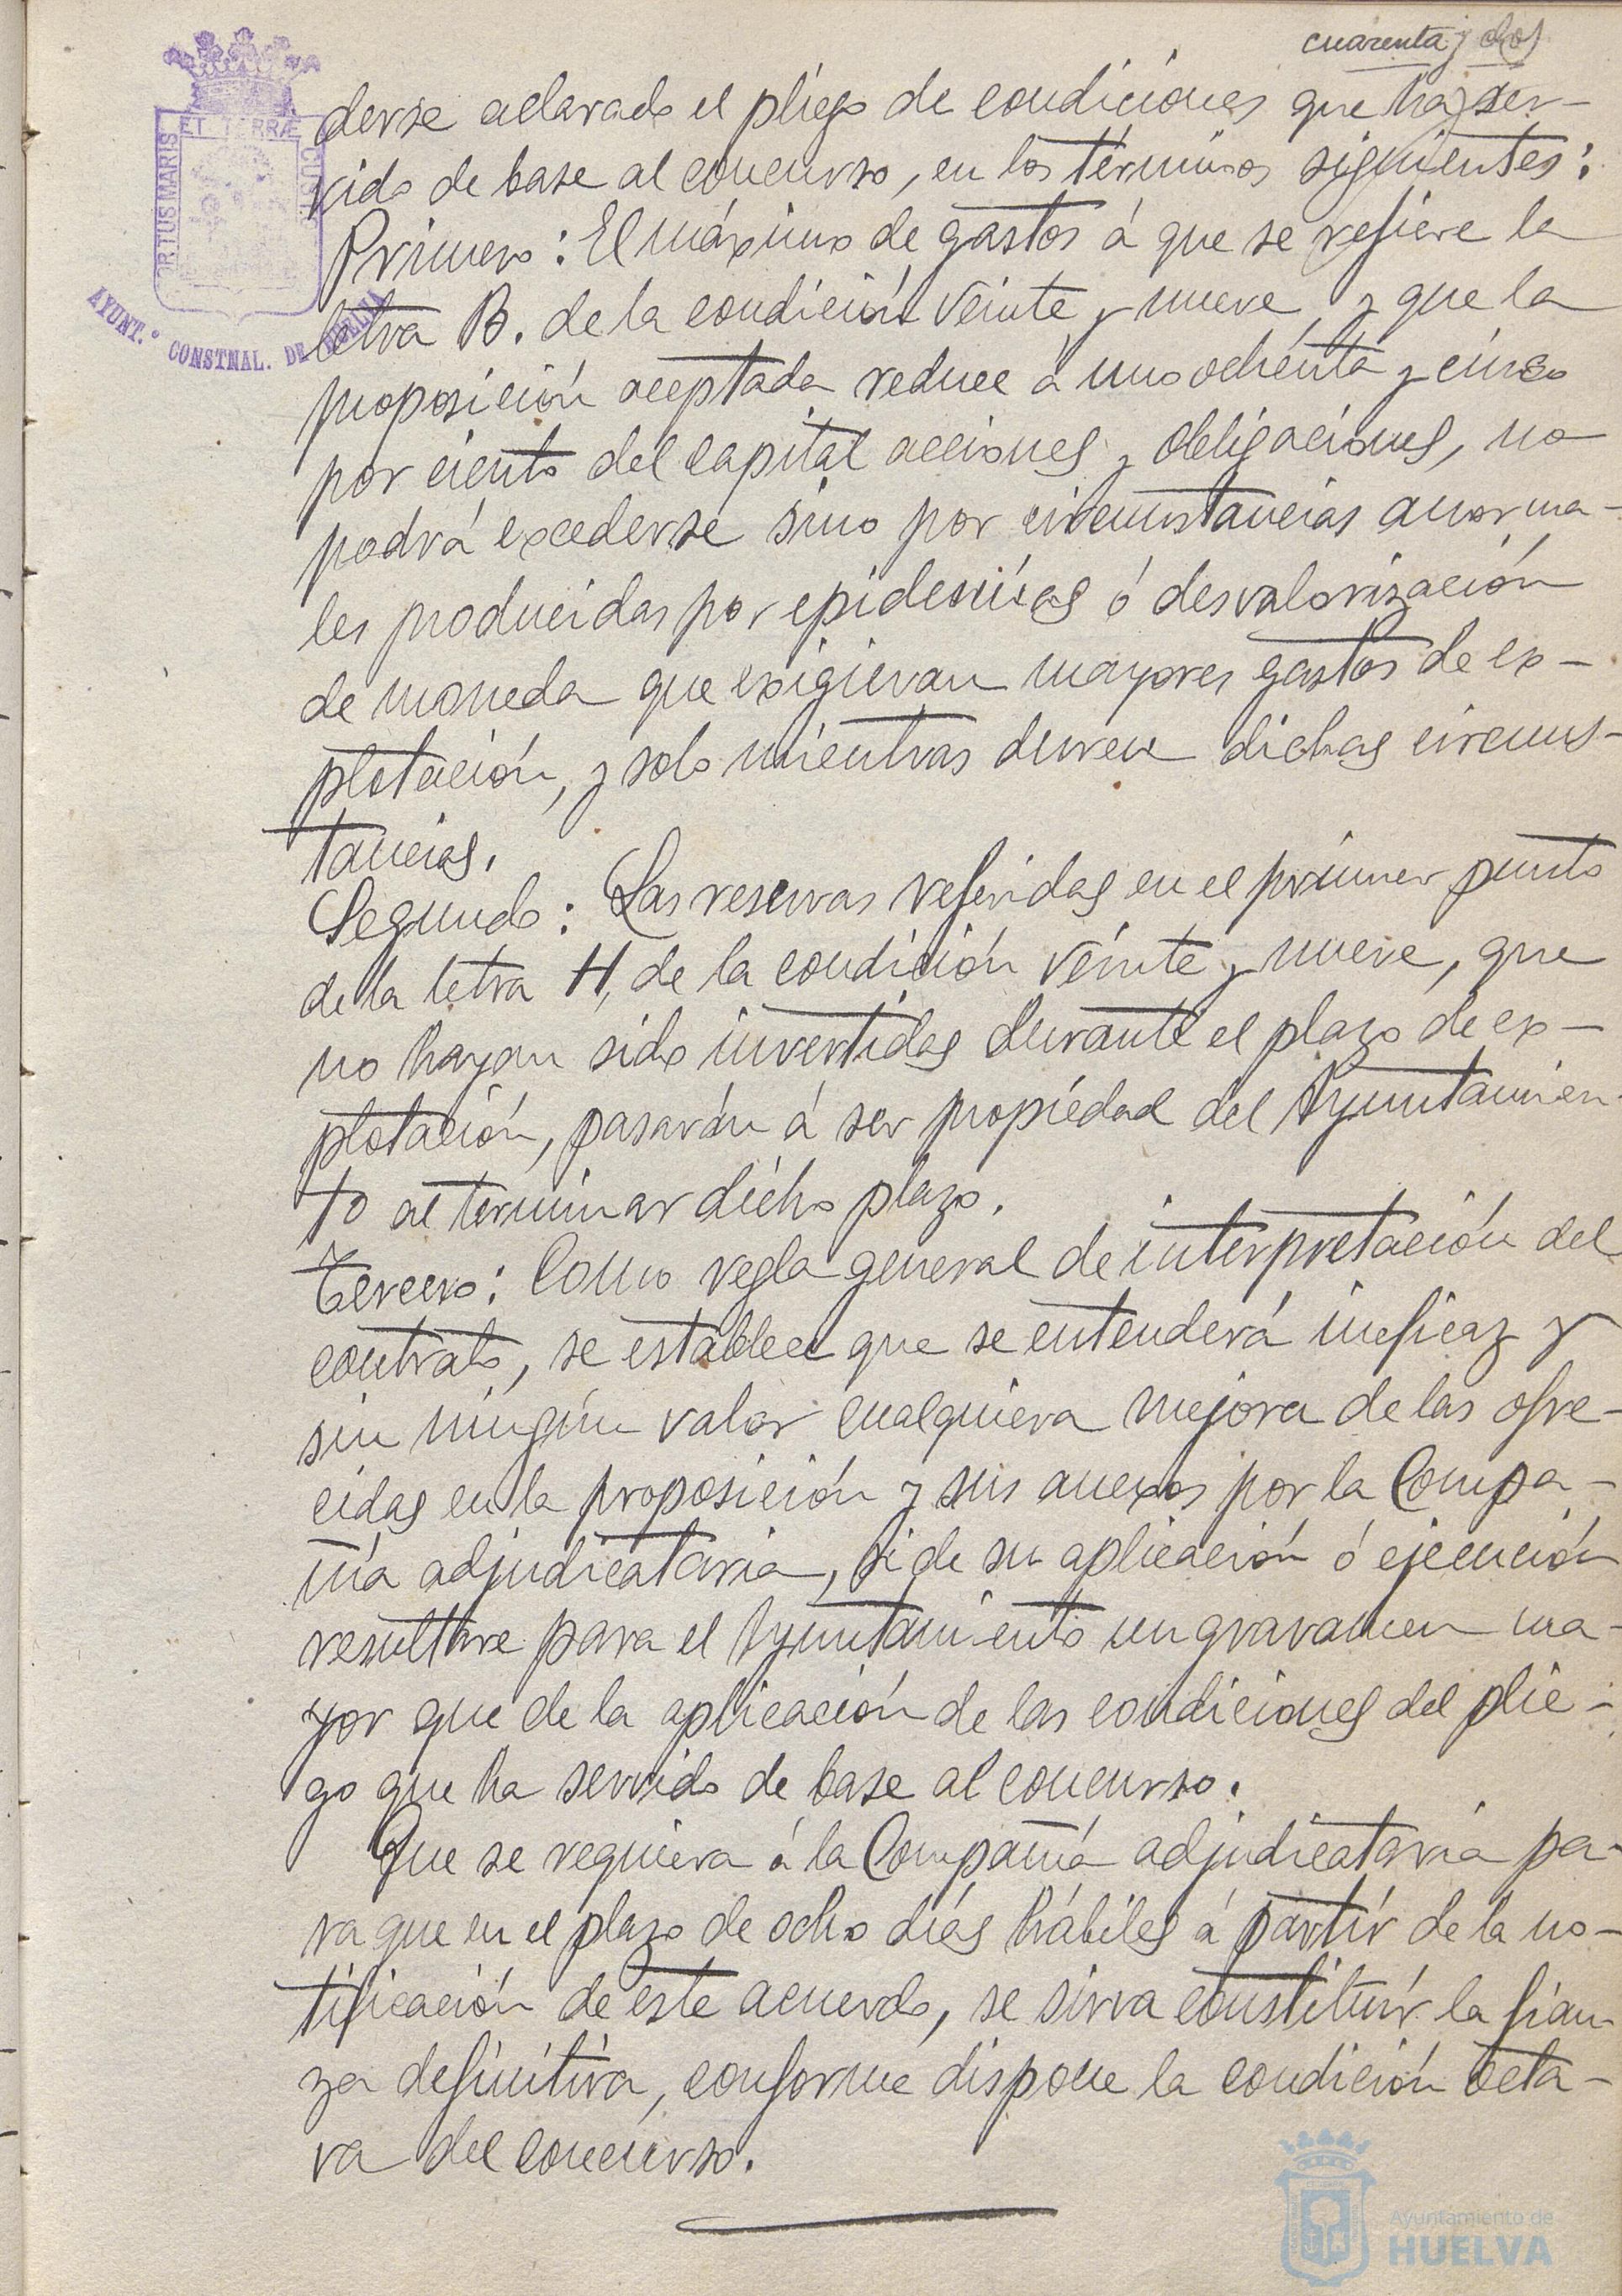 cuarenta y dos
derse aclarado el pliego de condiciones que ha ser-
vido de base al concurso, en los términos siguientes:
Primero: El máximo de gastos á que se refiere la
letra B. de la condición veinte y nueve, y que la
proposición aceptada reduce á uno ochenta y cinco
por ciento del capital acciones y obligaciones, no
podrá excederse sino por circunstancias anorma-
les producidas por epidemias ó desvalorización
de moneda que exigieran mayores gastos de ex-
plotación, y solo mientras duren dichas circuns-
tancias.
Segundo: Las reservas referidas en el primer punto
de la letra H, de la condición veinte y nueve, que
no hayan sido invertidas durante el plazo de ex-
plotación, pasarán á ser propiedad del Ayuntamien-
to al terminar dicho plazo.
Tercero: Como regla general de interpretación del
contrato, se establece que se entenderá ineficaz y
sin ningún valor cualquiera mejora de las ofre-
cidas en la proposición y sus anexos por la Compa-
ñía adjudicataria, si de su aplicación ó ejecución
resultare para el Ayuntamiento un gravamen ma-
yor que de la aplicación de las condiciones del plie-
go que ha servido de base al concurso.
Que se requiera á la Compañía adjudicataria pa-
ra que en el plazo de ocho días hábiles á partir de la no-
tificación de este acuerdo, se sirva constituir la fian-
za definitiva, conforme dispone la condición octa-
va del concurso.
ORTUS MARIS
ET TERRÆ
CUST.
AYUNT.º CONSTNAL. DE HUELVA
Ayuntamiento de
HUELVA